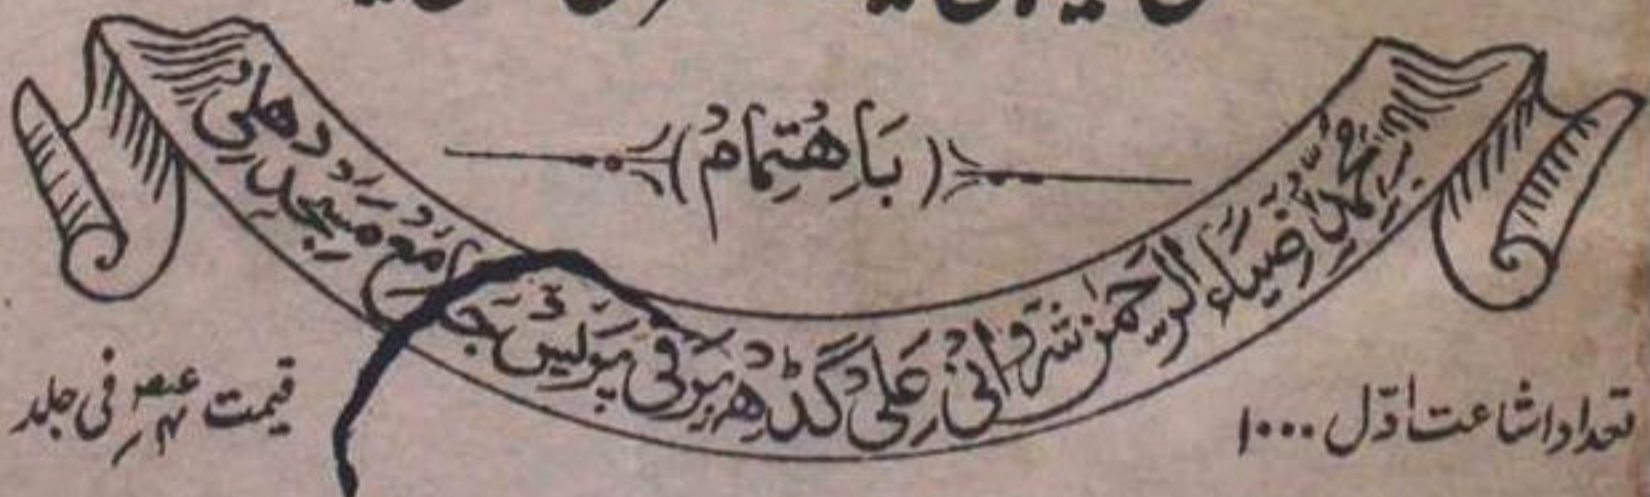 باهتمام
محمد ضیاء الرحمن شروانی علی گڈھ برقی پریس جامع مسجد دهلی
تعداد اشاعت اوّل ۱۰۰۰
قیمت فی جلد